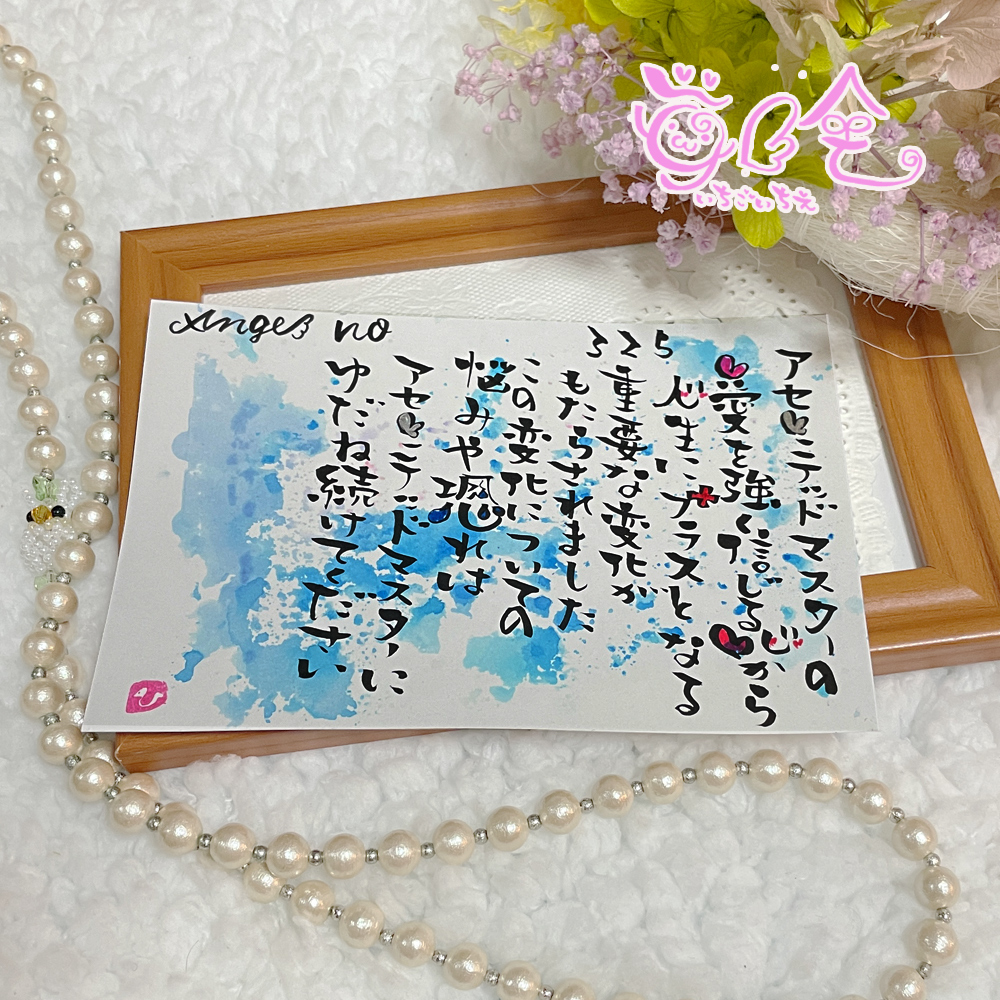 Angel no
325
アセンテッドマスターの
愛を強く信じる心から
人生にプラスとなる
重要な変化が
もたらされました
この変化についての
悩みや恐れは
アセンテッドマスターに
ゆだね続けてください
いちごいちえ